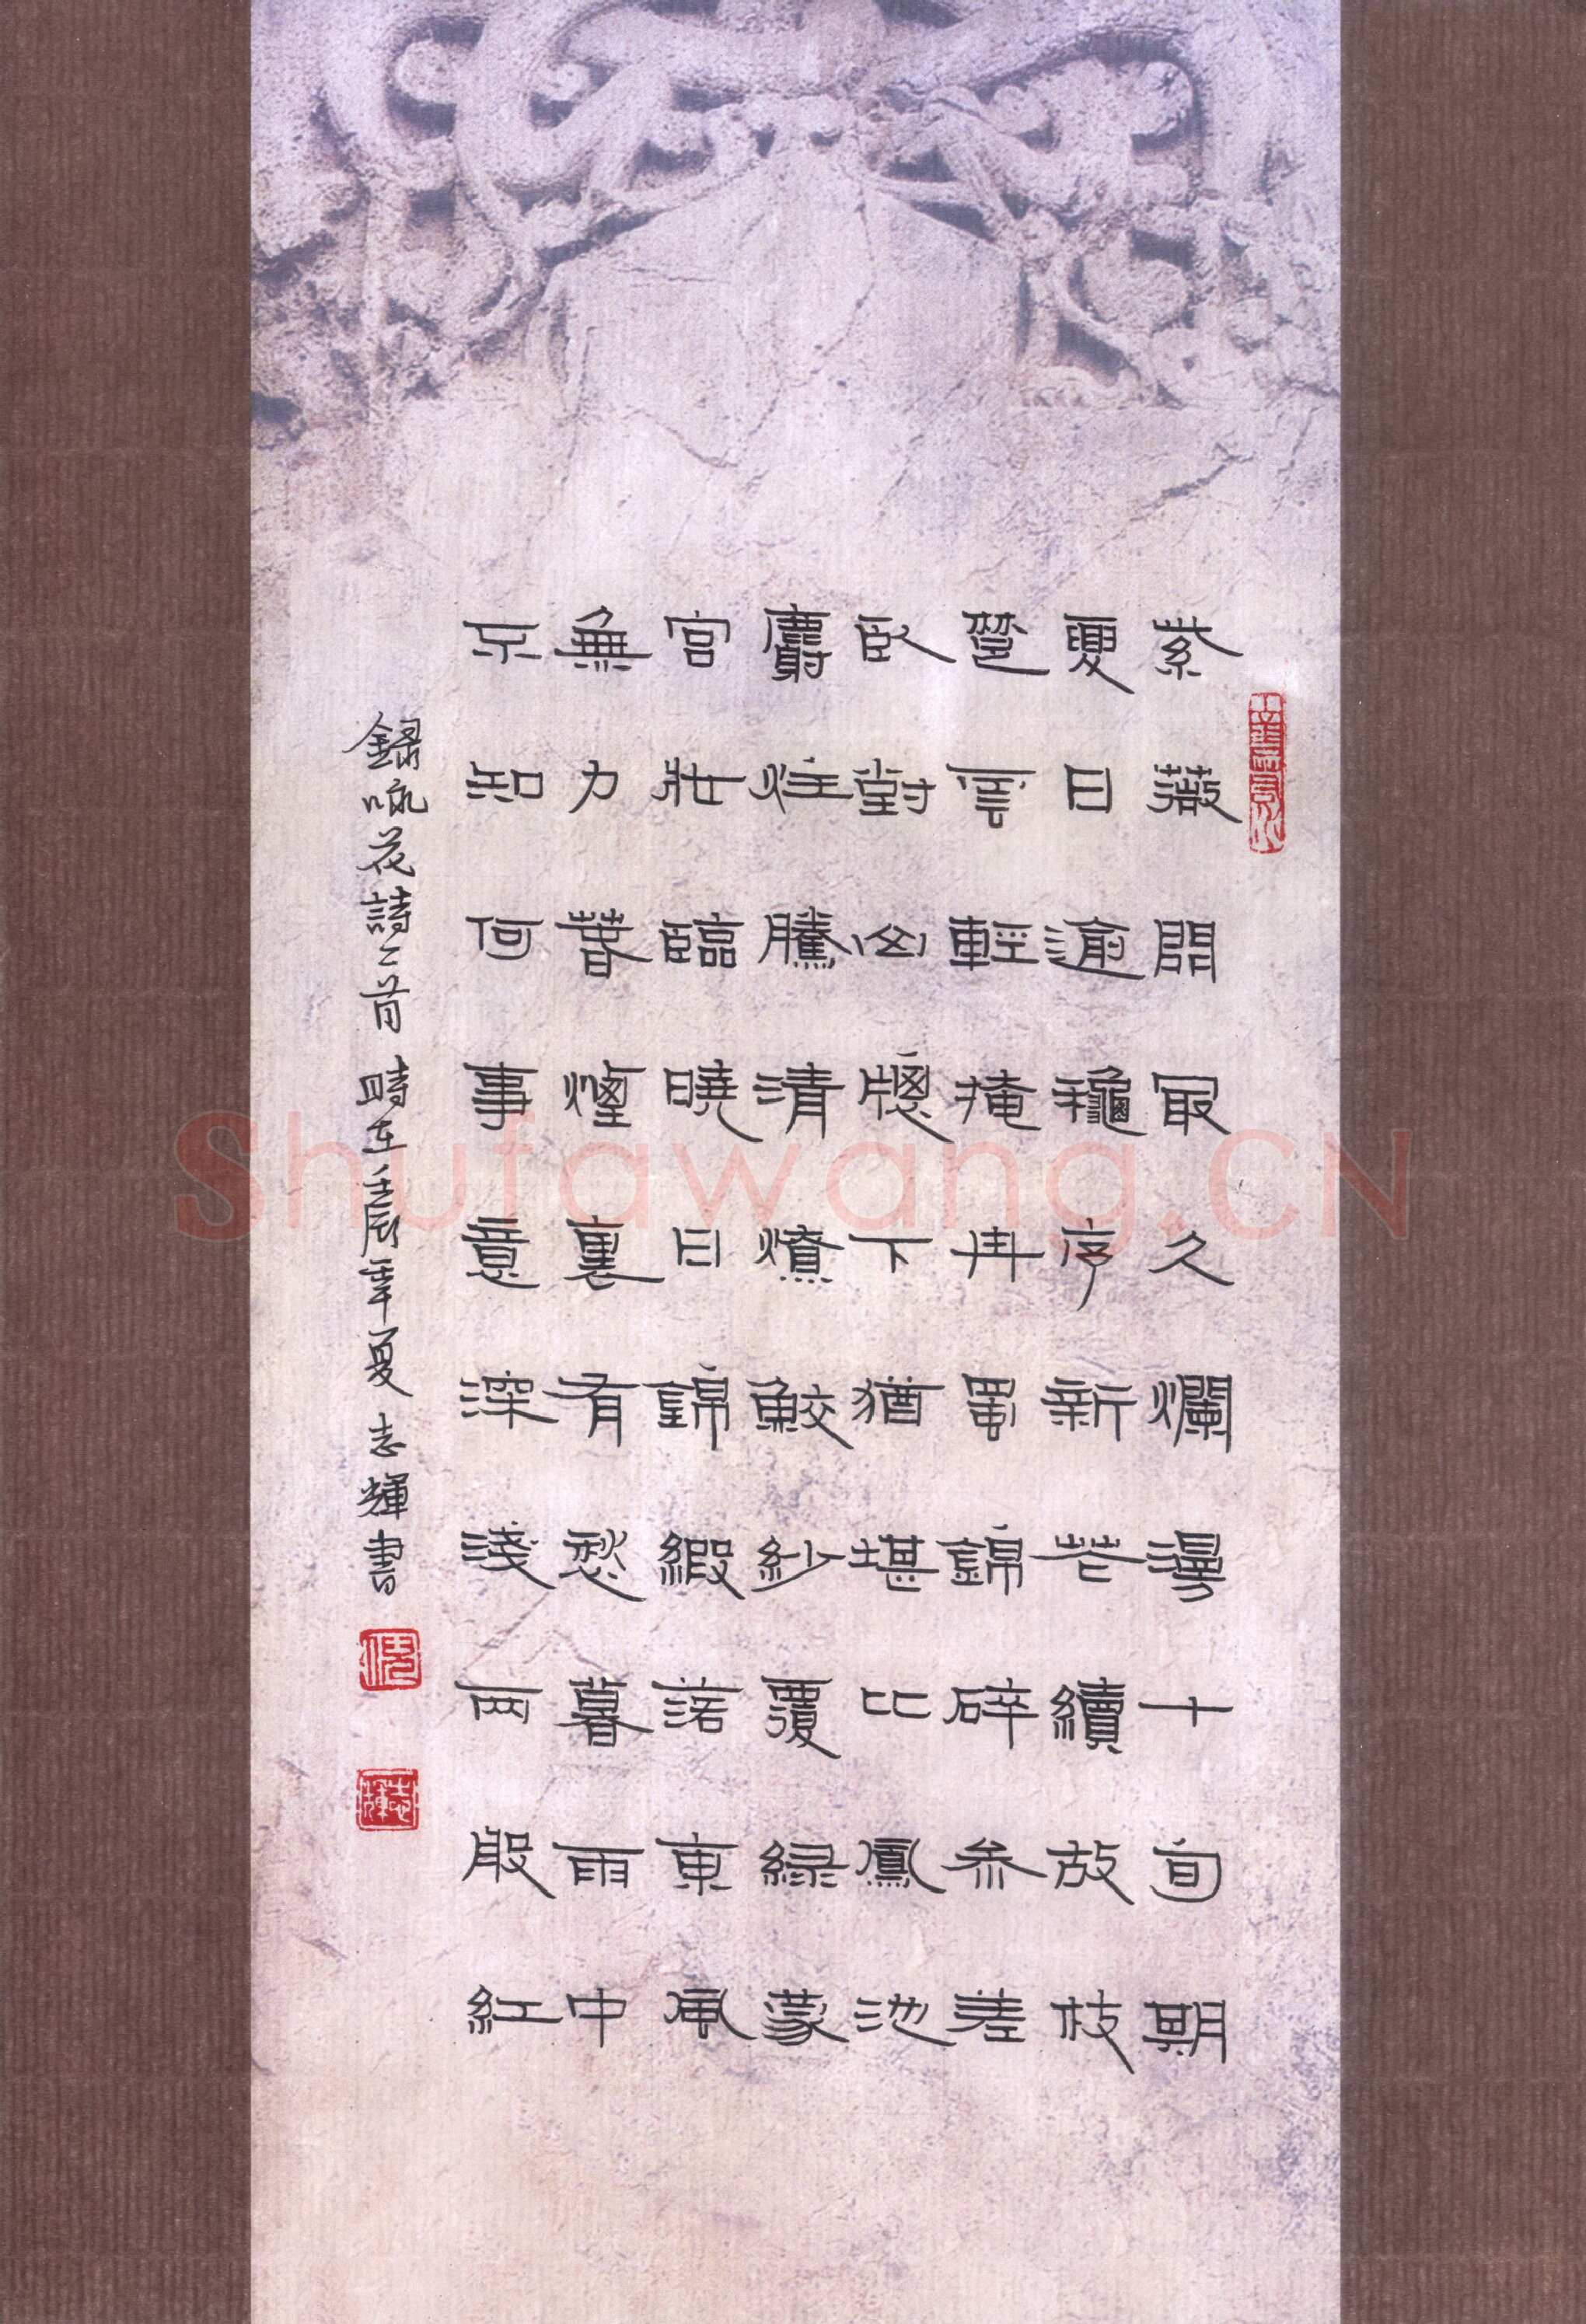 紫薇開最久爛漫十旬期
夏日逾龝序新花續故枝
楚雲輕掩冉蜀錦碎參差
臥對山牕下猶堪比鳳池
麝炷騰清燎鮫紗覆綠蒙
宮妝臨曉日錦緞落東風
無力春煙裏有愁暮雨中
不知何事意深淺兩般紅
錄咏花詩二首 時在壬辰年夏 志輝書
志輝
Shufawang.CN